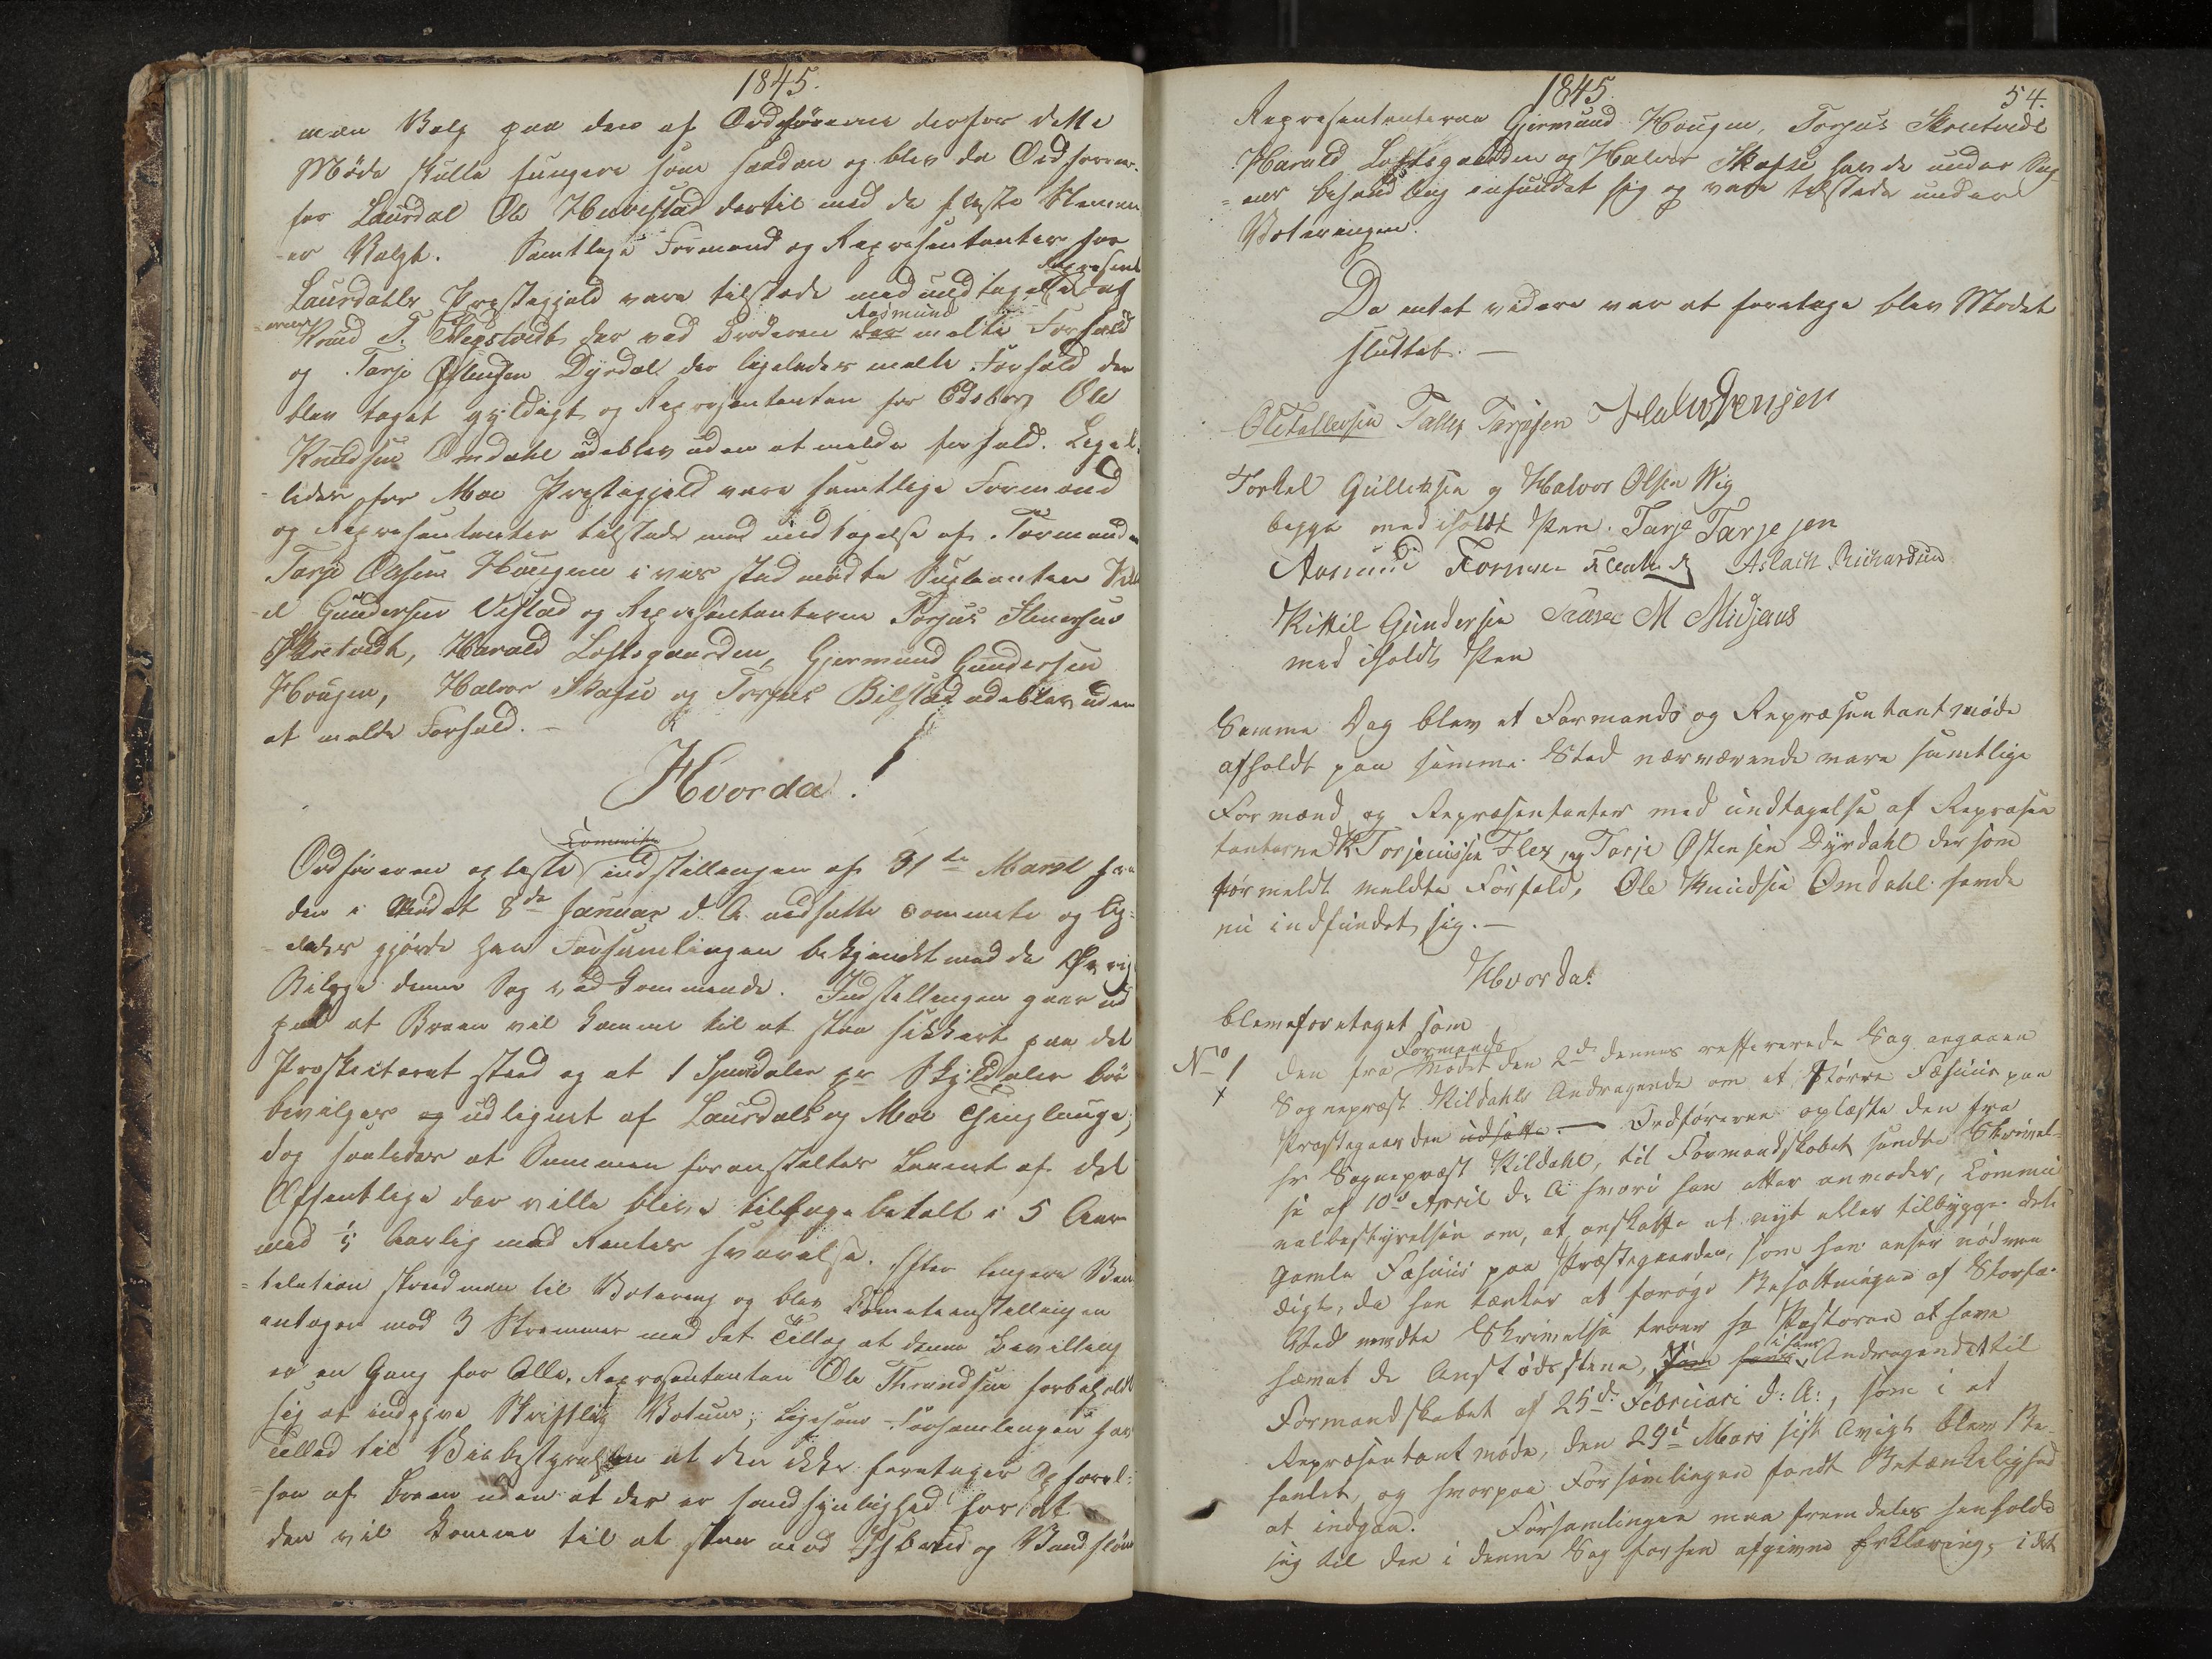 1845.
man Valg paa den af Ordførerne der for dette
Møde skulle fungere som saadan og blev da Ordføreren
for Laurdal Ole Hvvestad dertil med de fleste Stemm
-er Valgt. Samtlige Formænd og Repræsentanter for
Laurdahls Præstegjeld vare tilstæde med undtagelse af Repræsent
-anterne Knud T. der ved Broderen Aasmund melte Forfald
og Tarje Østensen Dyrdal der ligeledes melte Forfald der
blev taget gyldigt og Repræsentanten for Ole
Knudsen Omdahl udeblev uden at melde forfald. Lige-
-ledes for Moe Præstegjeld vare samtlige Formænd
og Repræsentanter tilstede med undtagelse af Formand
Tarje Olsen Hougen i vis sted mødte Suplianten Kitt
-el Gundersen Vistad og Repræsentanterne Torjus Steenersen
Skretvedt, Harald Loftsgaarden, Gjermund Gundersen
Hougen, Halvor Skafse og Torjus Bilstad udeblev uden
at melde Forfald. -
Hvorda!
Ordføreren oplæste indstillingen af 31te Marts fra
den i Mødet 8de Januar d. A. nedsatte Commete og lige-
-ledes gjørde han Forsamlingen bekjendt med de Øvrige
Bilage denne Sag vedkommende. Indstillingen gaar ud
paa at Broen vil komme til at staa sikkert paa det
Proskiteret sted og at 1 Spesdaler pr Skylddaler bør
bevilges og udlignet af Laurdals og Moe Thinglauge,
dog saaledes at Summen foranstaltes Laanet af det
Offentlige der ville blive tilbagebetalt i 5 Aar
med 1/5 aarlig med Renters svarelse. Efter længere Ven-
-telation skreed man til Votering og blev Cometeenstellingen
antagen mod 3 Stemmer med det Tillæg at denne Bevilling
er en Gang for Alle, Repræsentanten Ole Throndsen forbeholdt
sig at indgive Skriftlig Votum; ligesom Forsamlingen har
Tillid til Veibestyrelsen at den ikke foretager Opførel-
-sen af Broen uden at der er sandsynlighed for at
den vil komme til at staa mod Isbrud og Vandfløm
1845.
54.
Repræsentanterne Gjermund Hougen, Torjus Skretvedt
Harald Loftsgaarden og Halvor Skafse havde under Sag-
-ens behandling indfundet sig og vare tilstede under
Voteringen.
Da intet videre var at foretage blev Mødet
sluttet. —
Ole Tallevsen Tallev Tarjesen Halvor Jensen
Torkel Gullicksen og Halvor Olsen Vig
begge med iholdt Pen. Tarje Tarjesen
Aasmund Aslach Richardsen
Kittil Gundersen M Midjaas
med iholdt Pen
Samme Dag blev et Formands og Repræsentantmøde
afholdt paa samme Sted nærværende vare samtlige
Formænd og Repræsentanter med undtagelse af Repræsen
tanterne K Torjeussen og Tarje Østensen Dyrdahl der som
før meldt meldte Forfald, Ole Knudsen Omdahl havde
nu indfundet sig. —
Hvorda:
bleve foretaget som
No 1 den fra Formands Mødet den 2d dennes refererede Sag angaaen
x Sognepræst Kildahls Andragende om et større Fæhuus paa
Præstegaarden udsatte. — Ordføreren oplæste den fra
hr Sognepræst Kildahl, til Formandskabet sendte Skrivel-
se af 10d April d: A hvori han atter anmoder, Commu
nalbestyrelsen om, at anskaffe et nyt eller tilbygge det
Gamle Fæhuus paa Præstegaarden, som han anser nødven
digt, da han tænker at forøge Besættningen af Storfæ.
Ved nevdte Skrivelse troer hr Pastoren at have
hævet de Anstødsstene, som i hans Andragendet til
Formandskabet af 25d: Februari d: A:, som i et
Repræsentantmøde, den 29d Mars sist Avigt blev Be-
handlet, og hvorpaa Forsamlingen fandt Betænkelighed
at indgaa. Forsamlingen maa fremdeles henholde
sig til den i denne Sag forhen afgivne Erklæring, idet